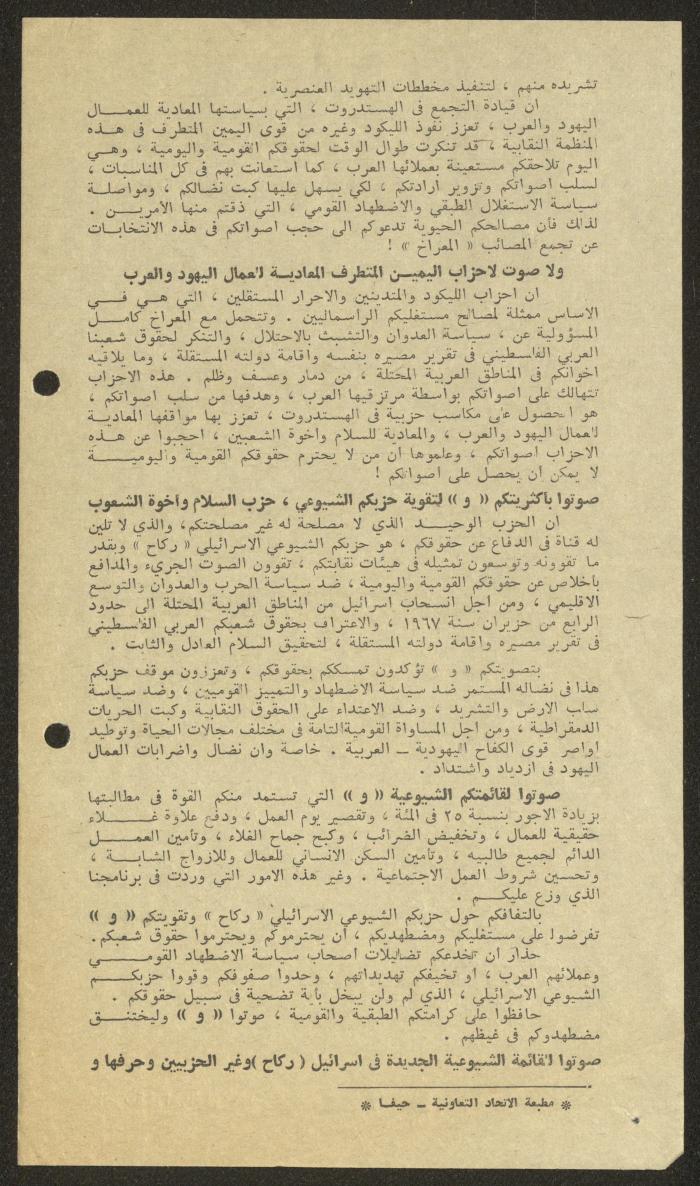 تشريده منهم ، لتنفيذ مخططات التهويد العنصرية .
ان قيادة التجمع فى الهستدروت ، التي بسياستها المعادية للعمــال
اليهود والعرب ، تعزز نفوذ الليكود وغيره من قوى اليمين المتطرف فى هــذه
المنظمة النقابية ، قد تنكرت طوال الوقت لحقوقكم القومية واليومية ، وهــي
اليوم تلاحقكم مستعينة بعملائها العرب ، كما استعانت بهم فى كل المناسبات ،
لسلب اصواتكم وتزوير ارادتكم ، لكي يسهل عليها كبت نضالكم ، ومواصلــة
سياسة الاستغلال الطبقي والاضطهاد القومي ، التي ذقتم منها الامريــن .
لذلك فأن مصالحكم الحيوية تدعوكم الى حجب اصواتكم فى هذه الانتخابــات
عن تجمع المصائب « المعراخ » !
ولا صوت لاحزاب اليميــن المتطرف المعاديــة لعمال اليهود والعرب
ان احزاب الليكود والمتدينين والاحرار المستقلين ، التي هــي فــي
الاساس ممثلة لمصالح مستغليكم الراسماليين . وتتحمل مع المعراخ كامــل
المسؤولية عن ، سياسة العدوان والتشبث بالاحتلال ، والتنكر لحقوق شعبنا
العربي الفلسطيني فى تقرير مصيره بنفسه واقامة دولته المستقلة ، وما يلاقيه
اخوانكم فى المناطق العربية المحتلة ، من دمار وعسف وظلم . هذه الاحزاب
تتهالك على اصواتكم بواسطة مرتزقيها العرب ، وهدفها من سلب اصواتكم ،
هو الحصول على مكاسب حزبية فى الهستدروت ، تعزز بها مواقفها المعاديــة
لعمال اليهود والعرب ، والمعادية للسلام واخوة الشعبين ، احجبوا عن هــذه
الاحزاب اصواتكم ، وعلموها ان من لا يحترم حقوقكم القومية واليوميــــة
لا يمكن ان يحصل على اصواتكم !
صوتوا بأكثريتكم (( و )) لتقوية حزبكم الشيوعي ، حزب السلام واخوة الشعوب
ان الحزب الوحيــد الذي لا مصلحة له غير مصلحتكم، والذي لا تلين
له قناة فى الدفاع عن حقوقكم ، هو حزبكم الشيوعي الاسرائيلي « ركاح » وبقدر
ما تقوونه وتوسعون تمثيله فى هيئات نقابتكم ، تقوون الصوت الجريء والمدافع
باخلاص عن حقوقكم القومية واليومية ، ضد سياسة الحرب والعدوان والتوسع
الاقليمي ، ومن اجل انسحاب اسرائيل من المناطق العربية المحتلة الى حدود
الرابع من حزيران سنة ١٩٦٧ ، والاعتراف بحقوق شعبكم العربي الفلسطيني
فى تقرير مصيره واقامة دولته المستقلة ، لتحقيق السلام العادل والثابت .
بتصويتكم « و » تؤكدون تمسككم بحقوقكم ، وتعززون موقف حزبكم
هذا فى نضاله المستمر ضد سياسة الاضطهاد والتمييز القوميين ، وضد سياسة
سلب الارض والتشريد ، وضد الاعتداء على الحقوق النقابية وكبت الحريات
الدمقراطية ، ومن اجل المساواة القومية التامة فى مختلف مجالات الحياة وتوطيد
اواصر قوى الكفاح اليهودية ــ العربية . خاصة وان نضال واضرابات العمال
اليهود فى ازدياد واشتداد .
صوتوا لقائمتكم الشيوعية (( و )) التي تستمد منكم القوة فى مطالبتها
بزيادة الاجور بنسبة ٢٥ فى المئة ، وتقصير يوم العمل ، ودفع علاوة غــلاء
حقيقية للعمال ، وتخفيض الضرائب ، وكبح جماح الغلاء ، وتأمين العمــل
الدائم لجميع طالبيه ، وتأمين السكن الانساني للعمال وللازواج الشابــة ،
وتحسين شروط العمل الاجتماعية . وغير هذه الامور التي وردت فى برنامجنا
الذي وزع عليكــم .
بالتفافكم حول حزبكم الشيوعي الاسرائيلي « ركاح » وتقويتكم (( و ))
تفرضوا على مستغليكم ومضطهديكم ، ان يحترموكم ويحترموا حقوق شعبكم.
حذار ان تخدعكم تضليلات اصحاب سياسة الاضطهاد القومــــي
وعملائهم العرب ، او تخيفكم تهديداتهم ، وحدوا صفوفكم وقووا حزبكــم
الشيوعي الاسرائيلي ، الذي لم ولن يبخل بأية تضحية فى سبيل حقوقكم .
حافظوا على كرامتكم الطبقية والقومية ، صوتوا (( و )) وليختنــق
مضطهدوكم فى غيظهم .
صوتوا لقائمة الشيوعية الجديدة فى اسرائيل ( ركاح )وغير الحزبيين وحرفها و
* مطبعة الاتحاد التعاونية ــ حيفا *